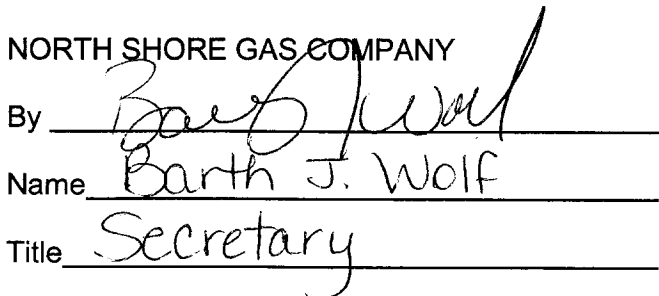 NORTH SHORE GAS COMPANY
By Barth J Wolf
Name Barth J. Wolf
Title Secretary